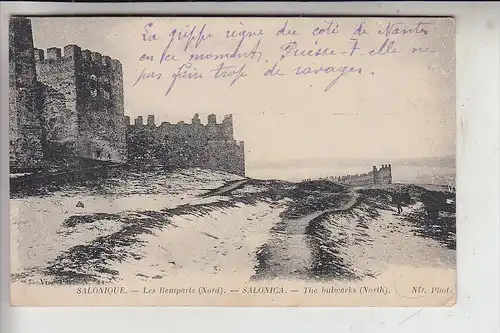 La grippe règne du côté de Nantes
en ce moment, Puisse-t-elle ne
pas faire trop de ravages.
SALONIQUE. — Les Remparts (Nord). — SALONICA. — The bulwarks (North). ND. Phot.